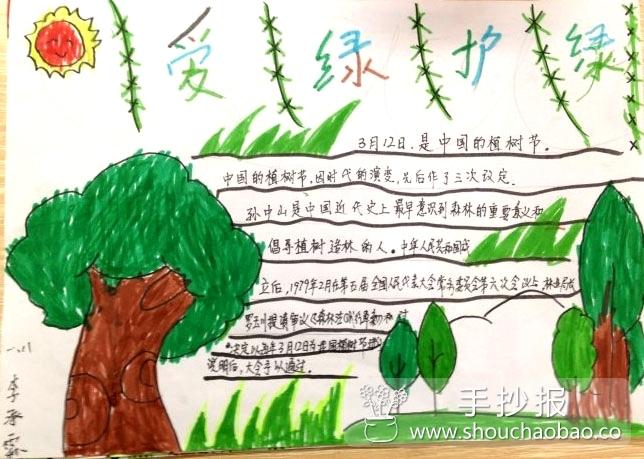 爱绿护绿
3月12日,是中国的植树节。
中国的植树节,因时代的演变,先后作了三次改定.
孙中山是中国近代史上最早意识到森林的重要意义和
倡导植树造林的人。中华人民共和国成
立后,1979年2月第五届全国人民代表大会常务委员会第六次会议上,林业局
罗玉川提请审议
决定以每年3月12日为我国植树节
说明后,大会予以通过。
李
手抄报
www.shouchaobao.co